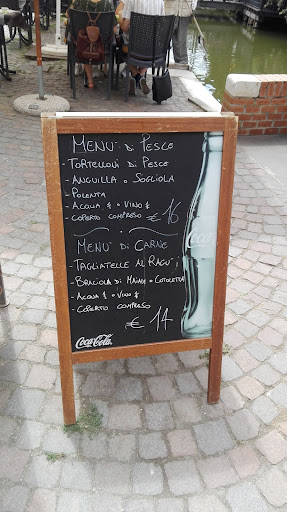 MENU' DI PESCE
- TORTELLONI DI PESCE
- ANGUILLA O SOGLIOLA
- POLENTA
- ACQUA ½ O VINO ½
- COPERTO COMPRESO € 16
MENU' DI CARNE
- TAGLIATELLE AL RAGU'
- BRACIOLA DI MAIALE O COTOLETTA
- ACQUA ½ O VINO ½
- COPERTO COMPRESO
€ 14
Coca-Cola
Coca-Cola